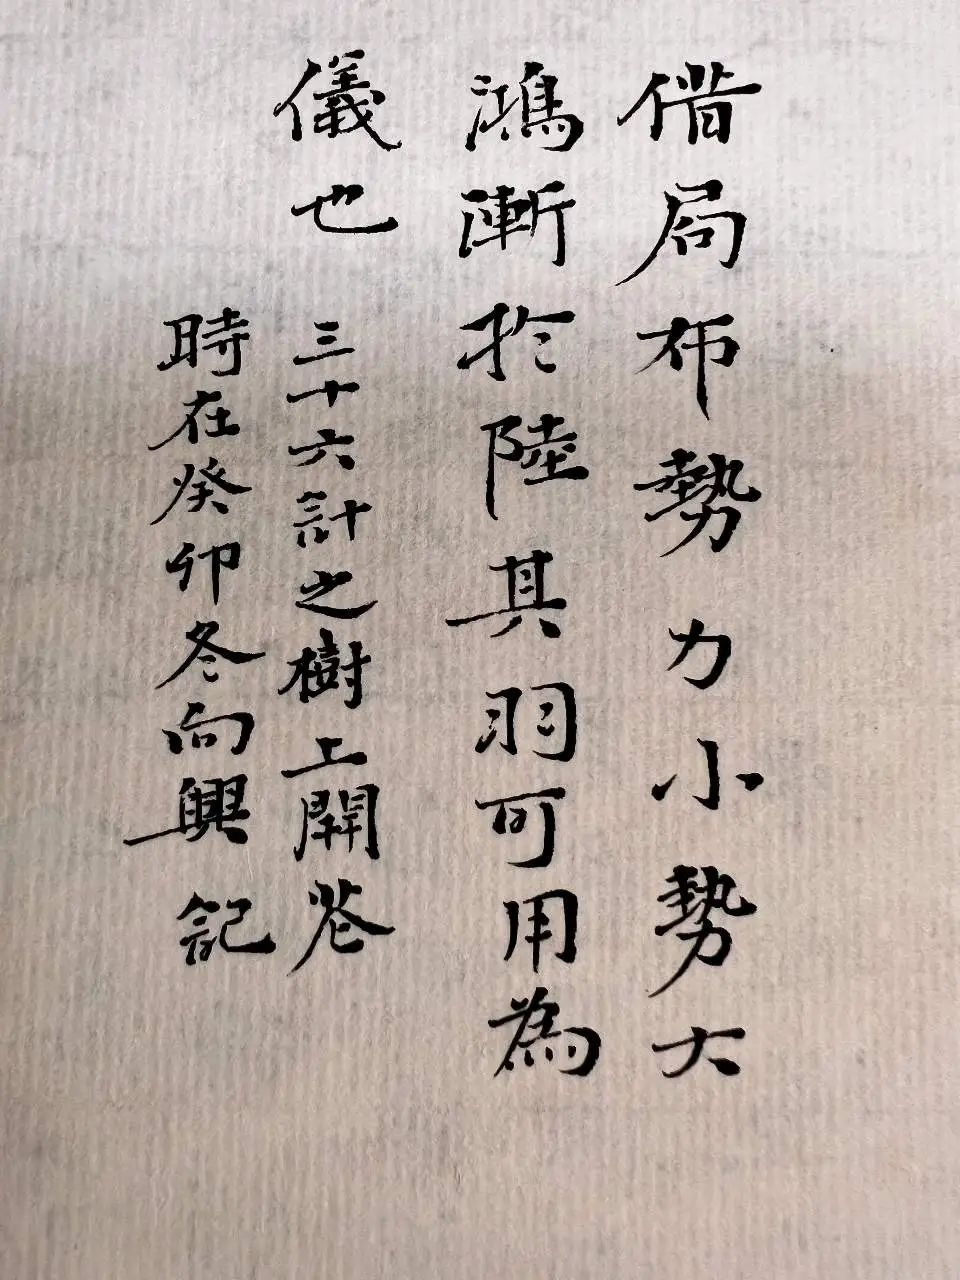 借局布勢力小勢大
鴻漸於陸其羽可用為
儀也
三十六計之樹上開花
時在癸卯冬向興記